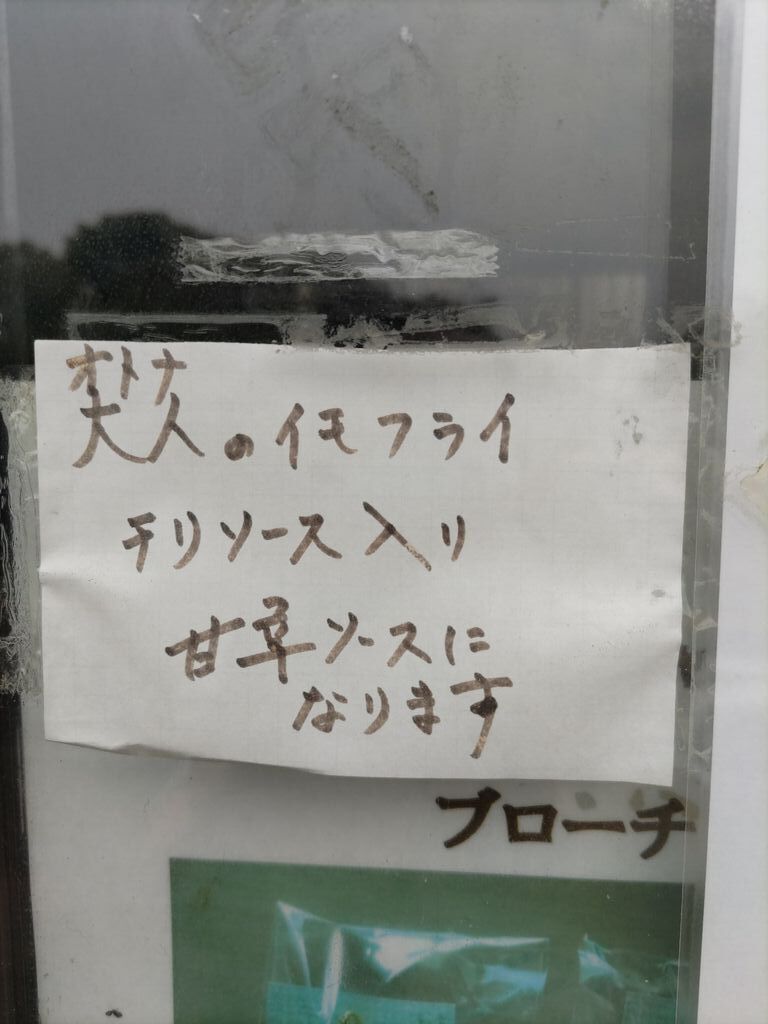 オトナ
大人のイモフライ
チリソース入り
甘辛ソースに
なります
ブローチ